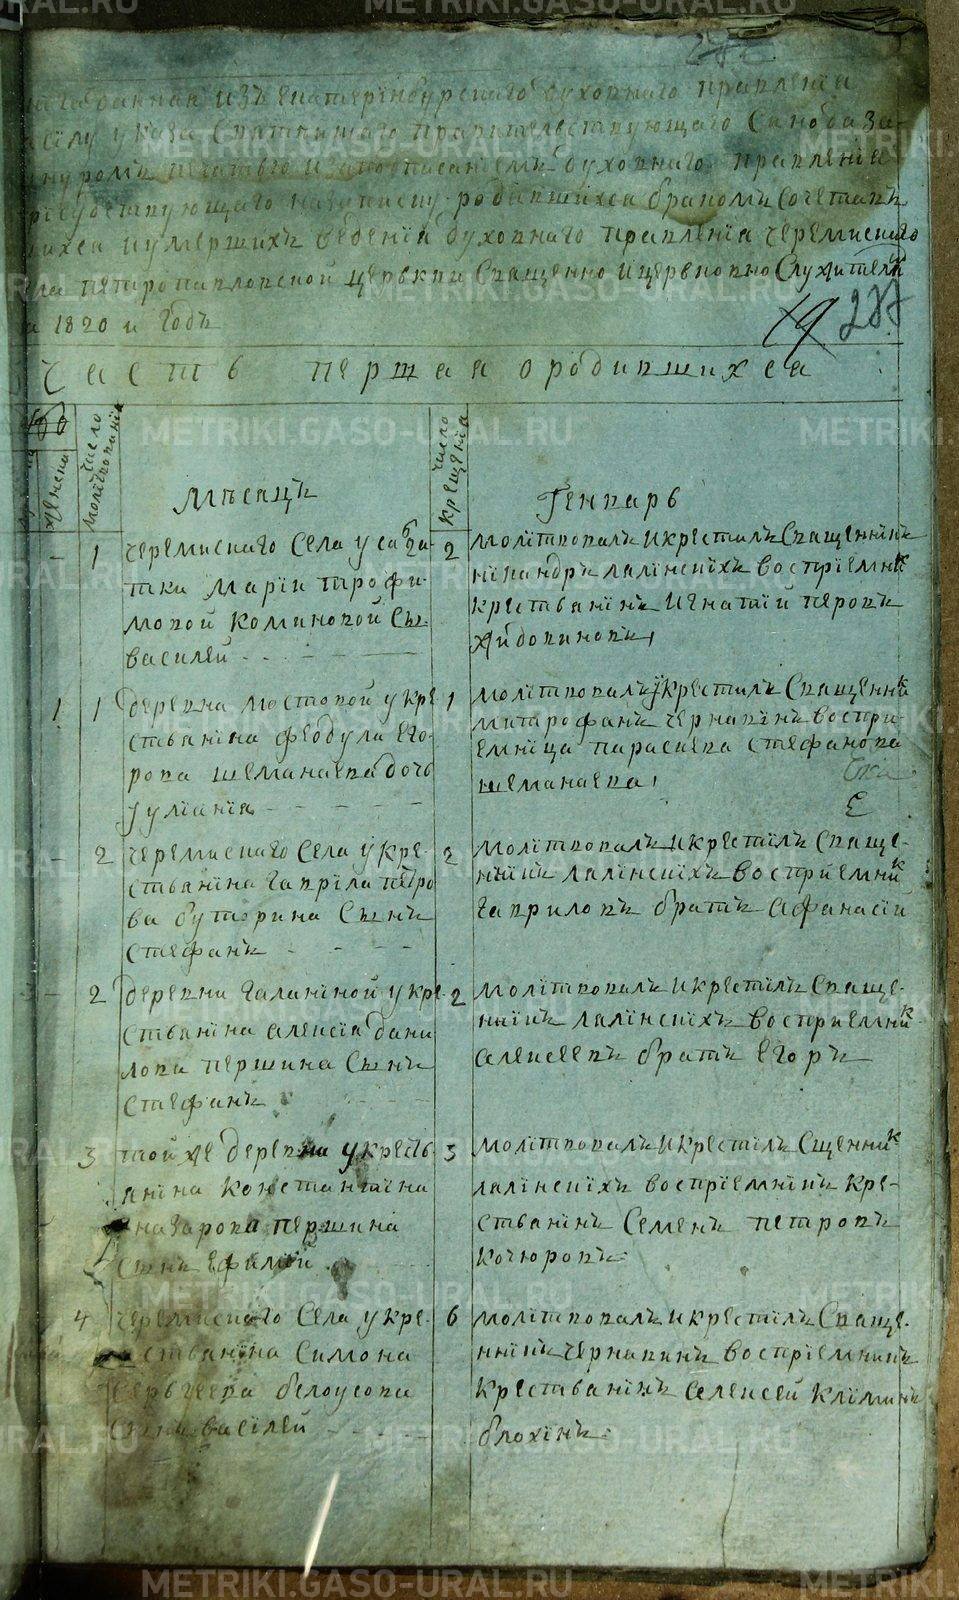 данная изъ екатерiнбурскаго духовнаго правленiя
силу указа Святейшаго правительствующаго Синода за
шнуромъ печатью и заподписанiемъ духовнаго правленiя
присудствующаго назаписку родившихся бракомъ сочетавъ
шихся иумершихъ веденiя духовнаго правленiя черемискаго
села петропавловской церькви Священно ицерковно Служителемъ
на 1820 и Годъ
19 287
Часть первая ородившихся
число молiтвованiя
число крещенiя
женска
Мѣсяцъ
Генварь
1 черемискаго Села у салда
тки Марiи трофи
мовой коминовой Сы
василей
2 молiтвовалъ икрестилъ Священнiкъ
нiкандръ лалiнскiхъ воспрiемнiкъ
крестьянiнъ Игнатiй перовъ
хайдокиновъ
1 1 деревна мостовой укре
стьянiна феодула его
рова шеманаева дочь
iулiанiя
1 молiтвовалъ Iкрестилъ Священнiкъ
митрофанъ чернавiнъ воспри
емнiца параскева стефанова
шеманаева
2 черемискаго Села укре
стьянiна гаврiла петро
ва буторина Сынъ
стефанъ
2 молiтвовалъ икрестiлъ Свяще
ннiкъ лалiнскiхъ воспрiемнiкъ
гавриловъ братъ афанасiи
2 деревни галанiной укре
стьянiна алексiа дани
лова першина Сынъ
стефанъ
2 молiтвовалъ икрестiлъ Свяще
ннiкъ лалiнскiхъ восприемнiкъ
алексеевъ братъ егоръ
3 той же деревни укресть
янiна константiна
назарова першина
Сынъ ефимей
3 молiтвовалъ икрестiлъ Сщеннiкъ
лалiнскiхъ воспрiемнiкъ кре
стьянiнъ Семенъ петровъ
кочюровъ
4 черемискаго Села укре
стьянiна Симона
Сергеева белоусова
Сынъ василей
6 молiтвовалъ икрестiлъ Свяще
ннiкъ чернавинъ воспрiемникъ
крестьянiнъ алексей клiминъ
блохiнъ